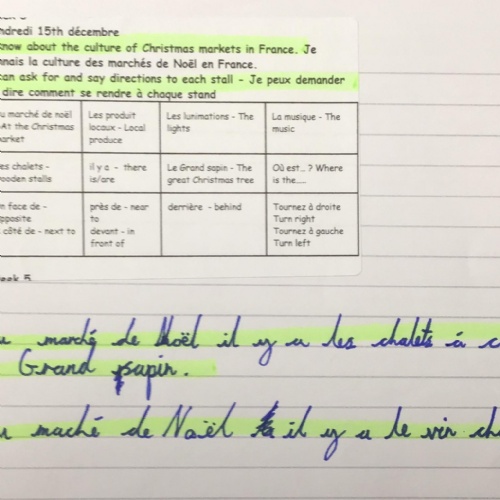 ndredi 15th décembre
know about the culture of Christmas markets in France. Je
nnais la culture des marchés de Noël en France.
can ask for and say directions to each stall - Je peux demander
dire comment se rendre à chaque stand
u marché de noël Les produit Les lunimations - The La musique - The
At the Christmas locaux - Local lights music
arket produce
es chalets - il y a - there Le Grand sapin - The Où est...? Where
ooden stalls is/are great Christmas tree is the.....
n face de - près de - near derrière - behind Tournez à droite
pposite to Turn right
côté de - next to devant - in Tournez à gauche
front of Turn left
eek 5
u marché de Noël il y a les chalets á c
Grand sapin.
u maché de Naël il y a le vin cha